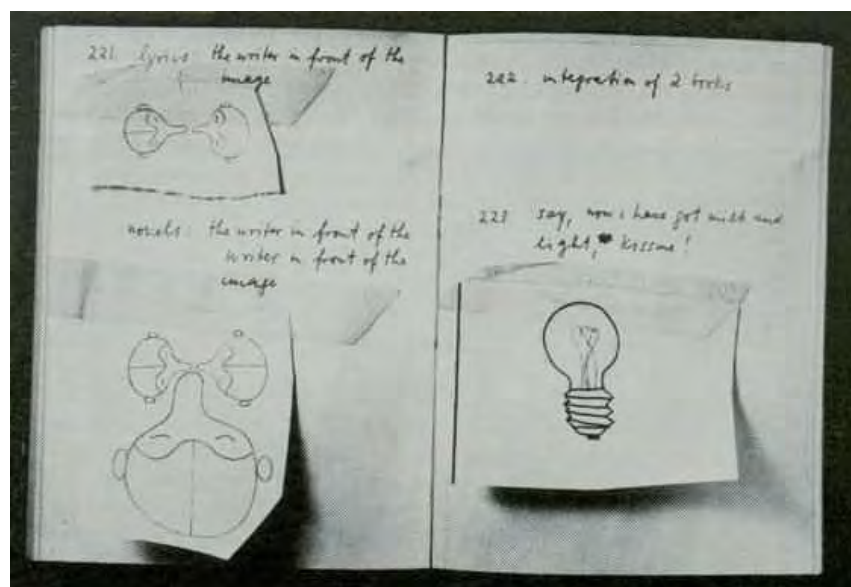 221. lyrics the writer in front of the
image
novels: the writer in front of the
writer in front of the
image
222. integration of 2 books
223 say, now i have got milk and
light, kissme!